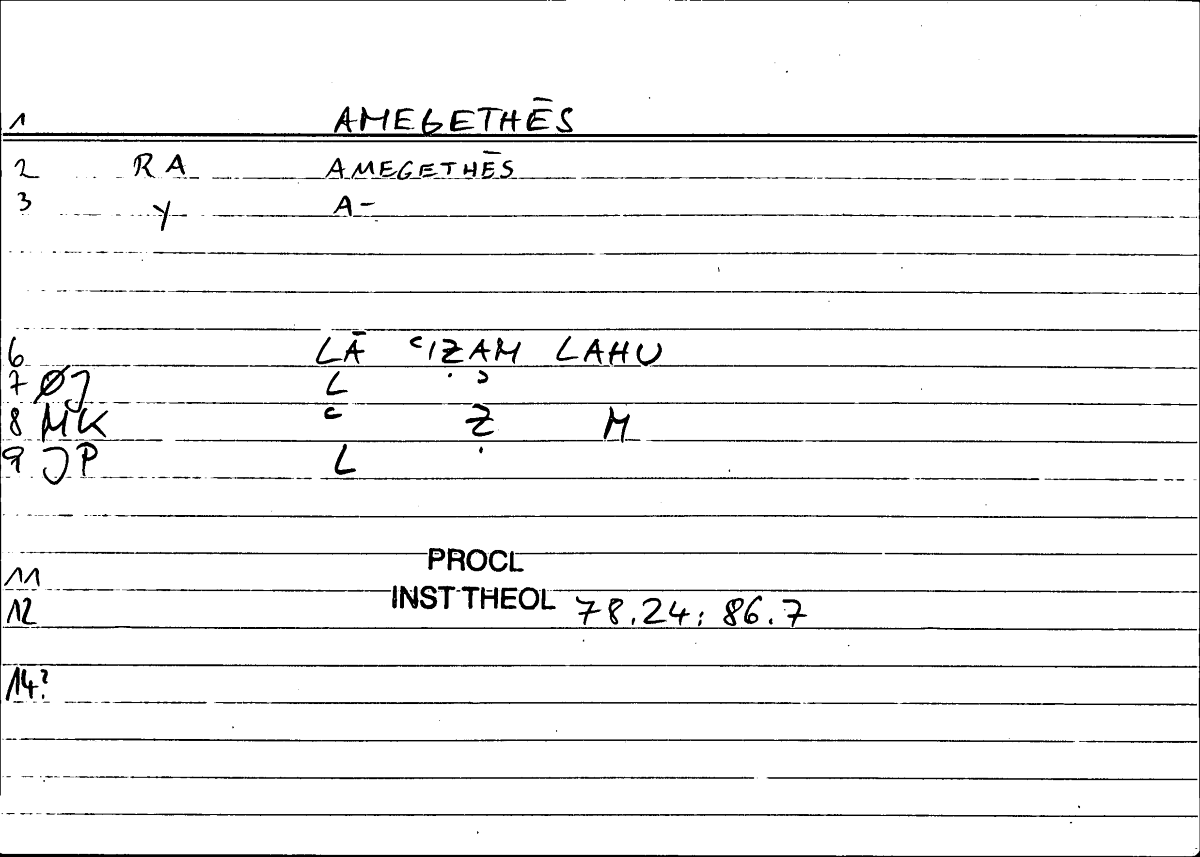 1 AMEGETHĒS
2 RA AMEGETHĒS
3 Y A-
6 LĀ ʿIẒAM LAHU
7 ØJ L ʾ
8 MK ʿ Ẓ M
9 JP L
11 PROCL
12 INST THEOL 78.24: 86.7
14?